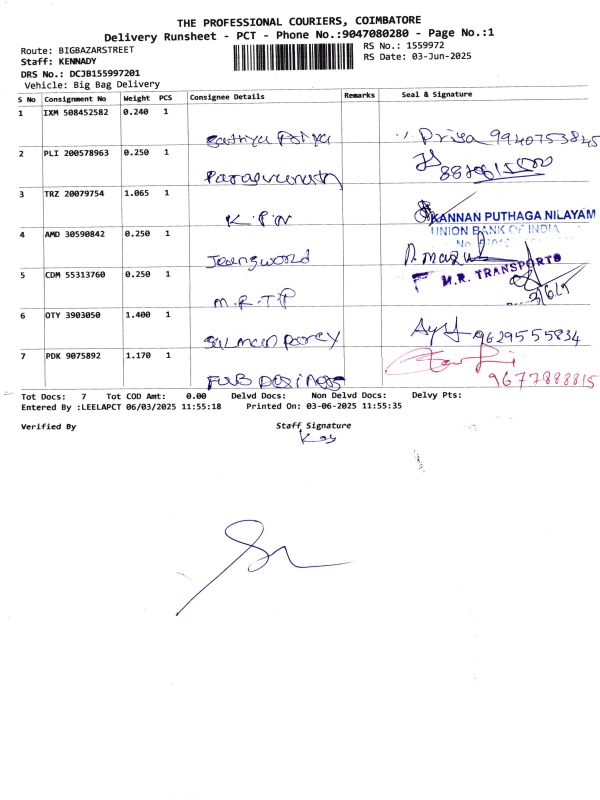 THE PROFESSIONAL COURIERS, COIMBATORE
Delivery Runsheet - PCT - Phone No.:9047080280 - Page No.:1
Route: BIGBAZARSTREET
RS No.: 1559972
Staff: KENNADY
RS Date: 03-Jun-2025
DRS No.: DCJB155997201
Vehicle: Big Bag Delivery
S No Consignment No Weight PCS Consignee Details Remarks Seal & Signature
1 IXM 508452582 0.240 1
Sathya Priya Priya 9940753845
2 PLI 200578963 0.250 1
3 TRZ 20079754 1.065 1
K.P.N KANNAN PUTHAGA NILAYAM
4 AMD 30590842 0.250 1
UNION BANK OF INDIA
5 CDM 55313760 0.250 1
M.R.T.P M.R. TRANSPORTS
6 OTY 3903050 1.400 1
9629555834
7 PDK 9075892 1.170 1
9677888815
Tot Docs: 7 Tot COD Amt: 0.00 Delvd Docs: Non Delvd Docs: Delvy Pts:
Entered By :LEELAPCT 06/03/2025 11:55:18 Printed On: 03-06-2025 11:55:35
Verified By Staff Signature